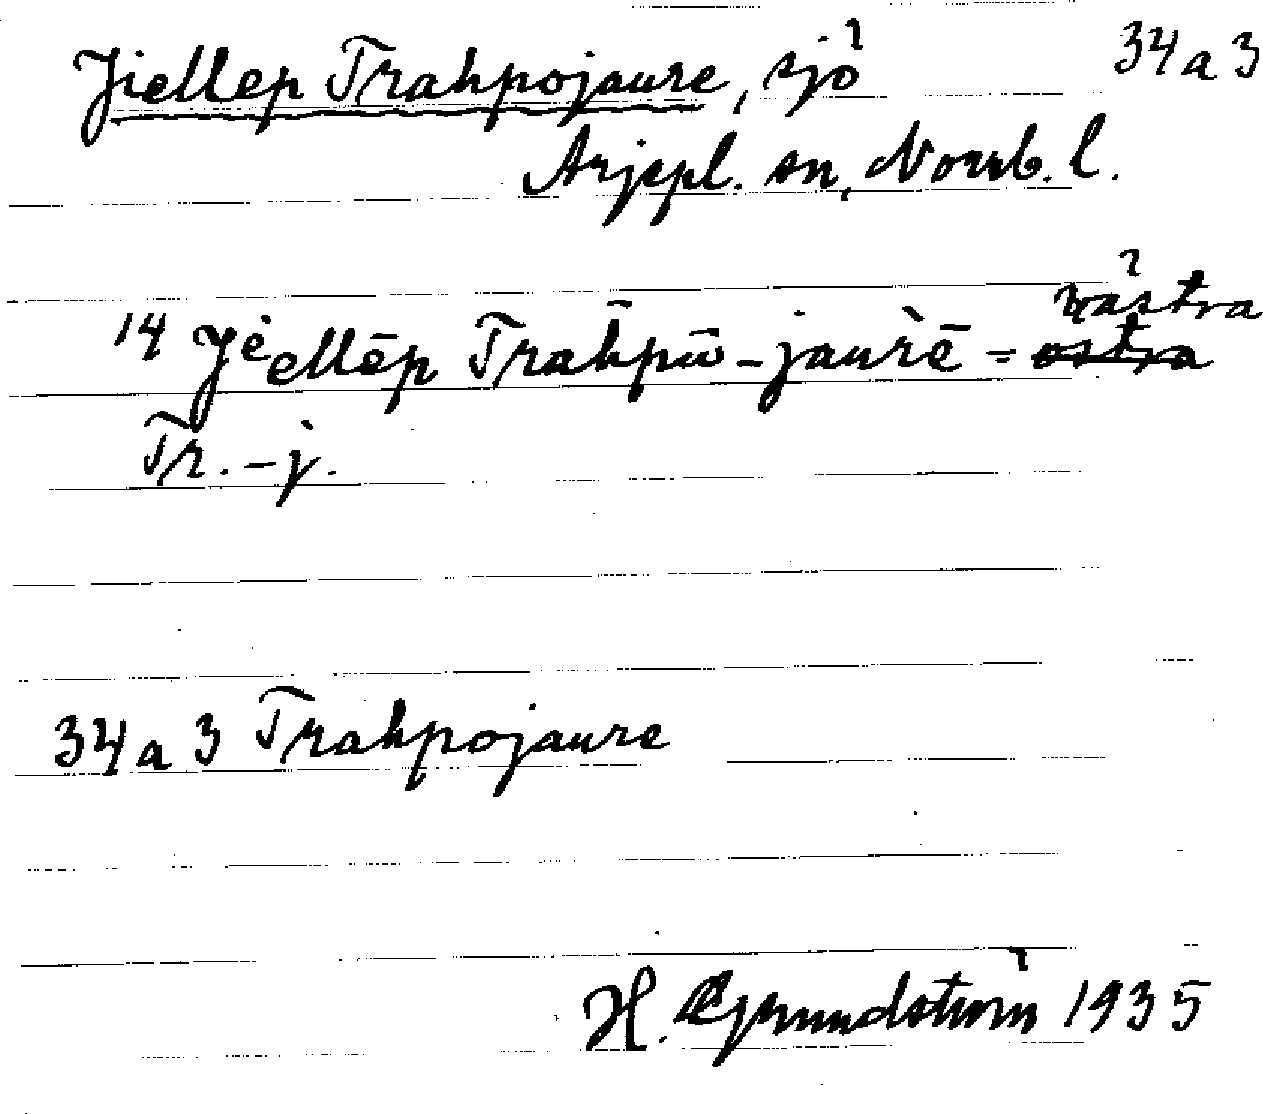 Jiellep Trahpojaure, sjö 34a3
Arjepl. sn, Norrb. l.
14 Jiellēp Trāhpū-jaurē = västra
Tr.-j.
34a3 Trahpojaure
H. Grundström 1935